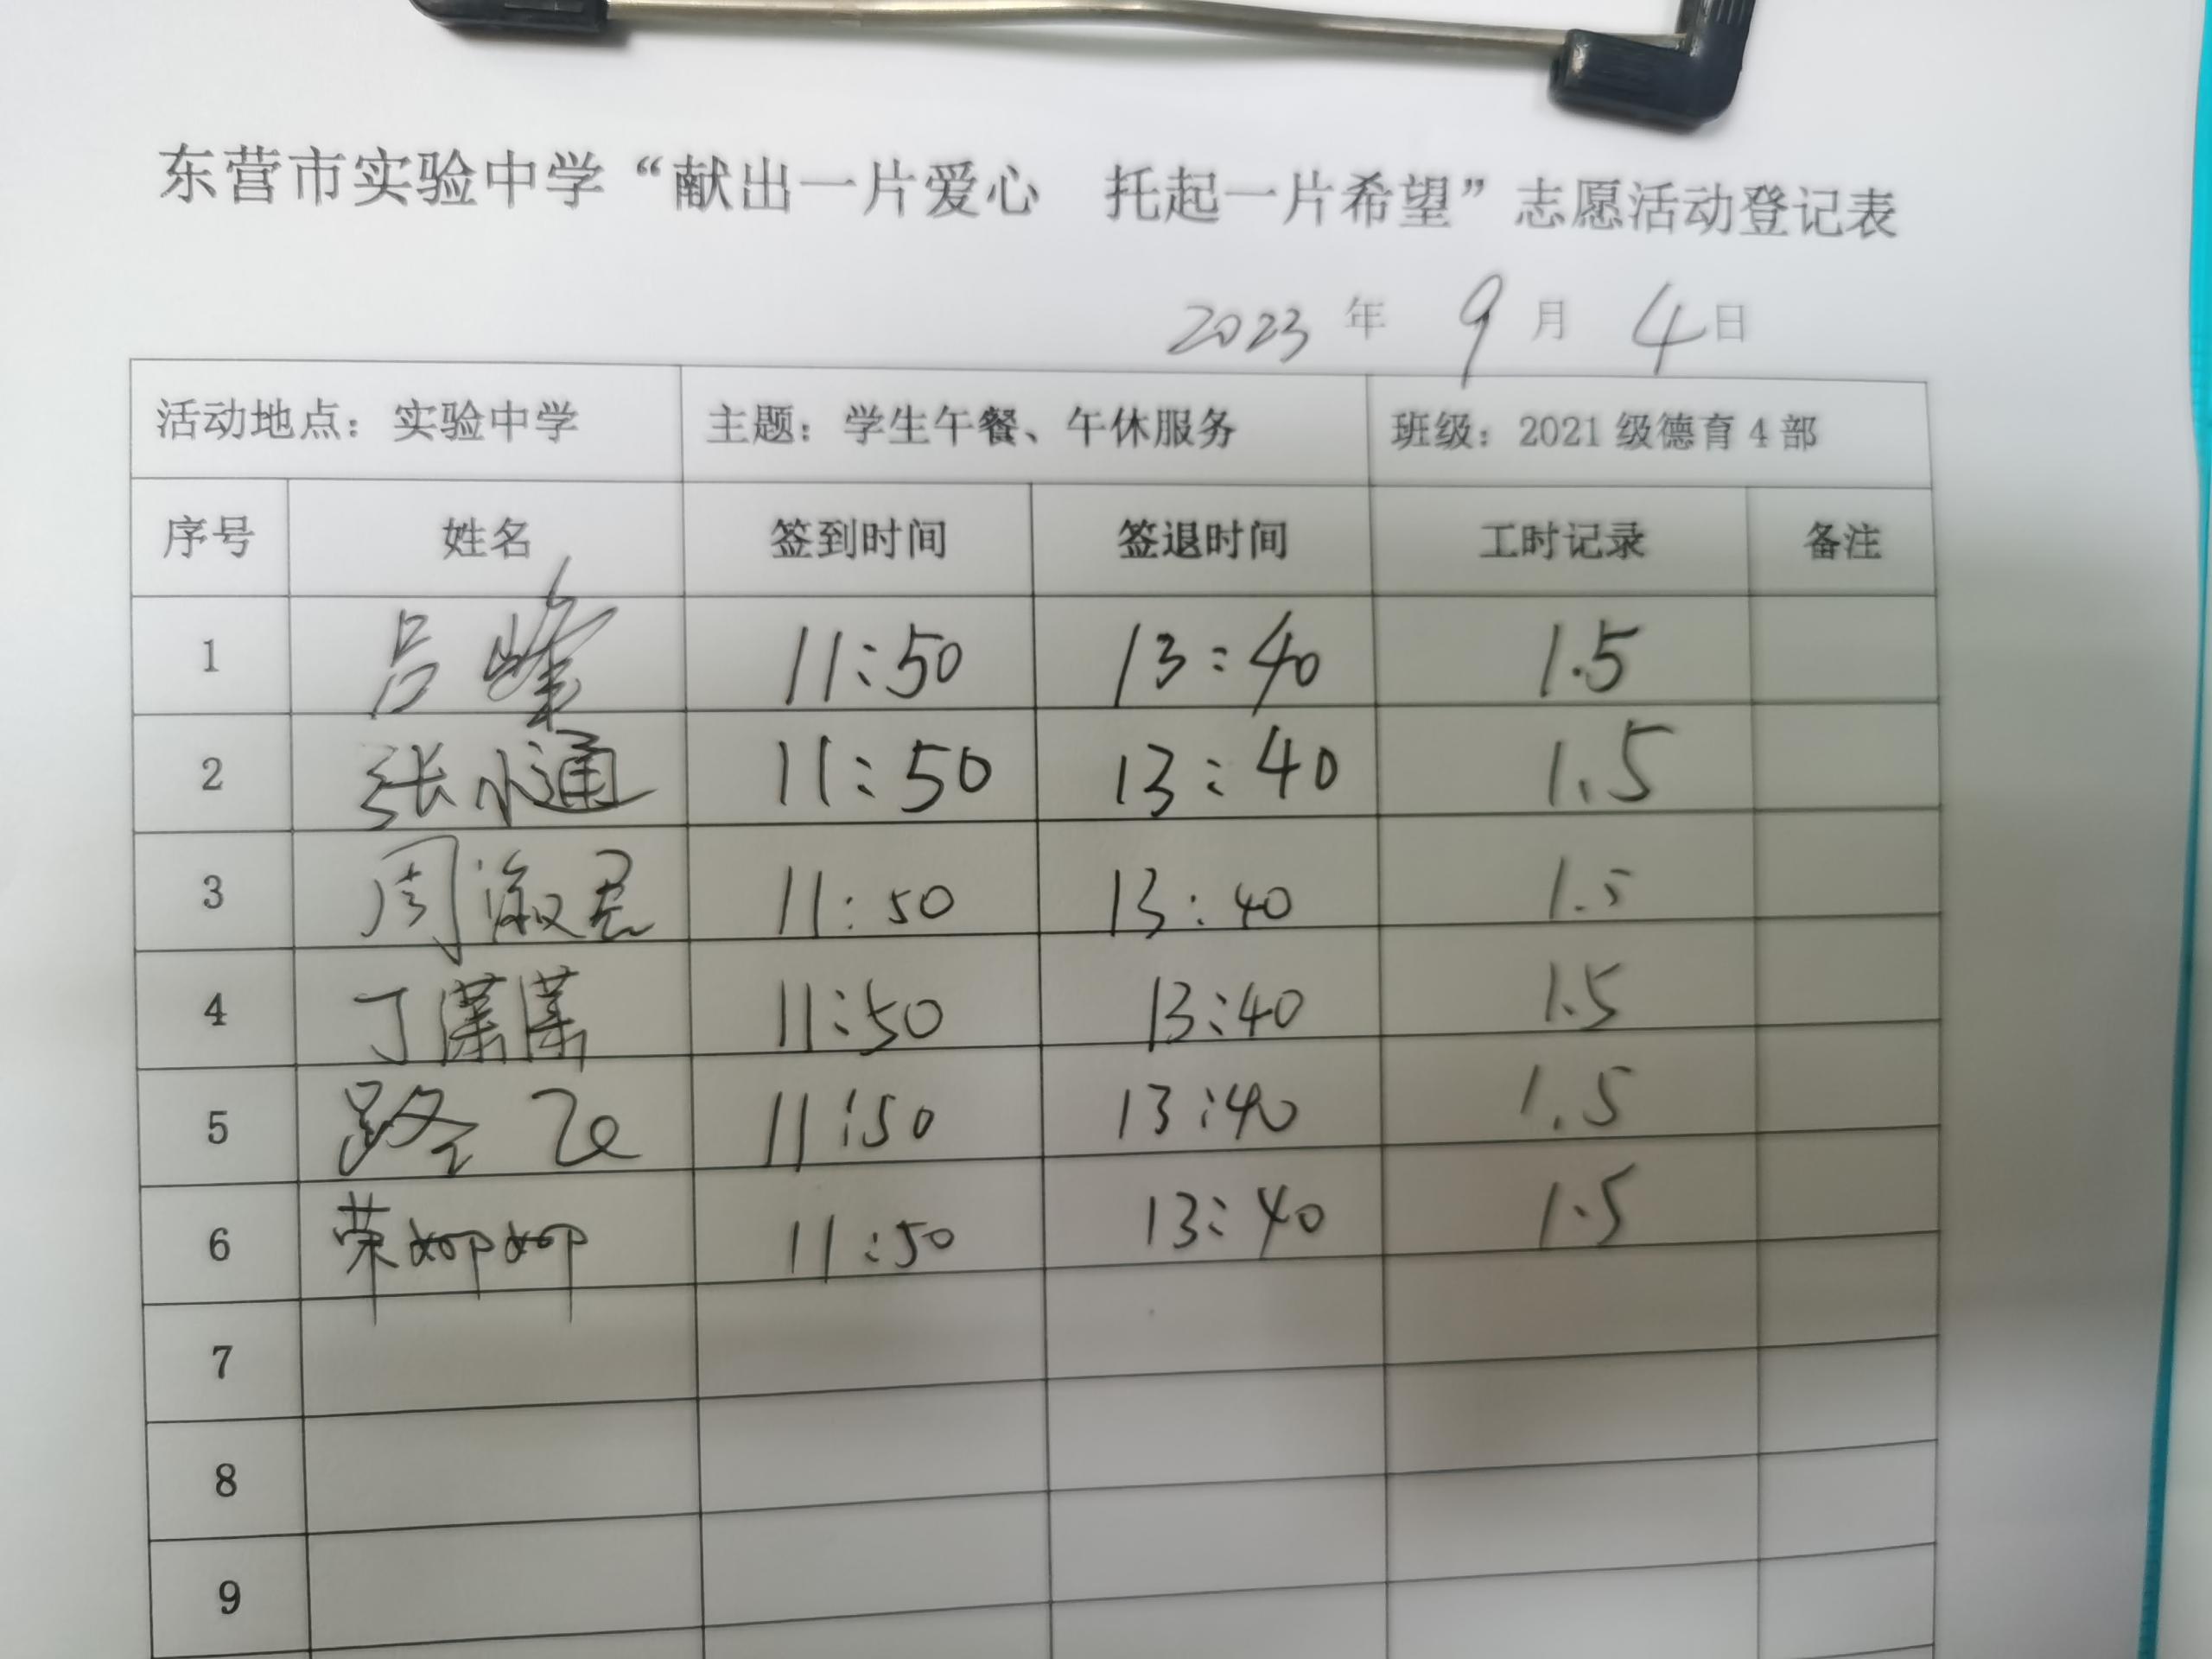 东营市实验中学“献出一片爱心 托起一片希望”志愿活动登记表
2023 年 9 月 4 日
活动地点：实验中学 主题：学生午餐、午休服务 班级：2021级德育4部
序号 姓名 签到时间 签退时间 工时记录 备注
1 吕峰 11:50 13:40 1.5
2 张小通 11:50 13:40 1.5
3 周淑君 11:50 13:40 1.5
4 丁潇潇 11:50 13:40 1.5
5 路飞 11:50 13:40 1.5
6 荣 11:50 13:40 1.5
7
8
9